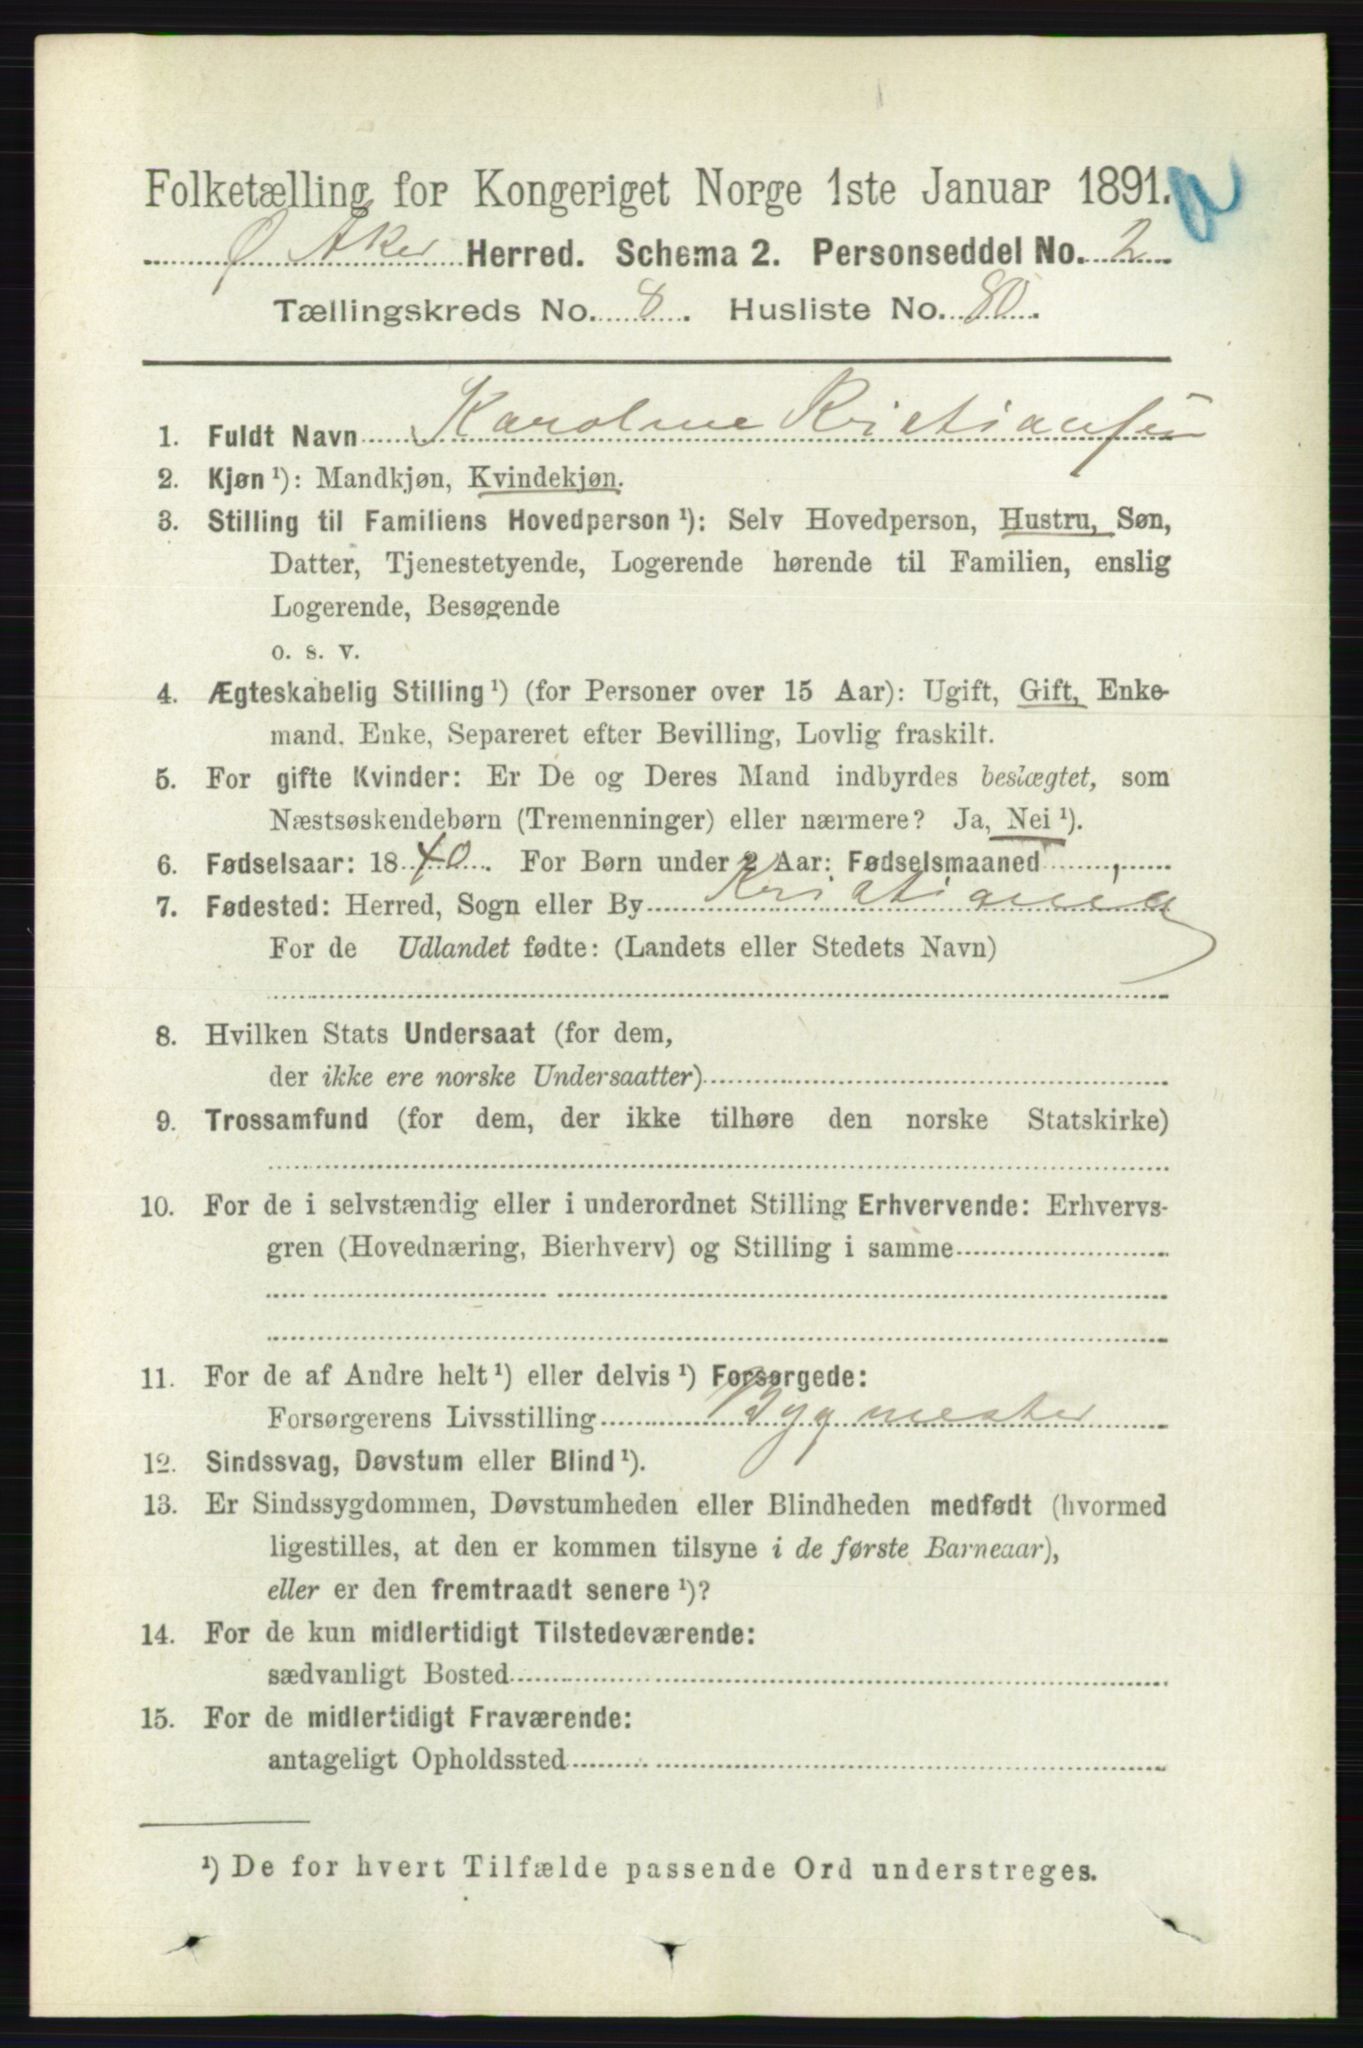 Folketælling for Kongeriget Norge 1ste Januar 1891. a
Ø Aker Herred. Schema 2. Personseddel No. 2
Tællingskreds No. 8. Husliste No. 80.
1. Fuldt Navn Karoline Kristiansen
2. Kjøn ¹): Mandkjøn, Kvindekjøn.
3. Stilling til Familiens Hovedperson ¹): Selv Hovedperson, Hustru, Søn,
Datter, Tjenestetyende, Logerende hørende til Familien, enslig
Logerende, Besøgende
o. s. v.
4. Ægteskabelig Stilling ¹) (for Personer over 15 Aar): Ugift, Gift, Enke-
mand, Enke, Separeret efter Bevilling, Lovlig fraskilt.
5. For gifte Kvinder: Er De og Deres Mand indbyrdes beslægtet, som
Næstsøskendebørn (Tremenninger) eller nærmere? Ja, Nei ¹).
6. Fødselsaar: 1840. For Børn under 2 Aar: Fødselsmaaned
7. Fødested: Herred, Sogn eller By Kristiania
For de Udlandet fødte: (Landets eller Stedets Navn)
8. Hvilken Stats Undersaat (for dem,
der ikke ere norske Undersaatter)
9. Trossamfund (for dem, der ikke tilhøre den norske Statskirke)
10. For de i selvstændig eller i underordnet Stilling Erhvervende: Erhvervs-
gren (Hovednæring, Bierhverv) og Stilling i samme
11. For de af Andre helt ¹) eller delvis ¹) Forsørgede:
Forsørgerens Livsstilling Bygmester
12. Sindssvag, Døvstum eller Blind ¹).
13. Er Sindssygdommen, Døvstumheden eller Blindheden medfødt (hvormed
ligestilles, at den er kommen tilsyne i de første Barneaar),
eller er den fremtraadt senere ¹)?
14. For de kun midlertidigt Tilstedeværende:
sædvanligt Bosted
15. For de midlertidigt Fraværende:
antageligt Opholdssted
¹) De for hvert Tilfælde passende Ord understreges.